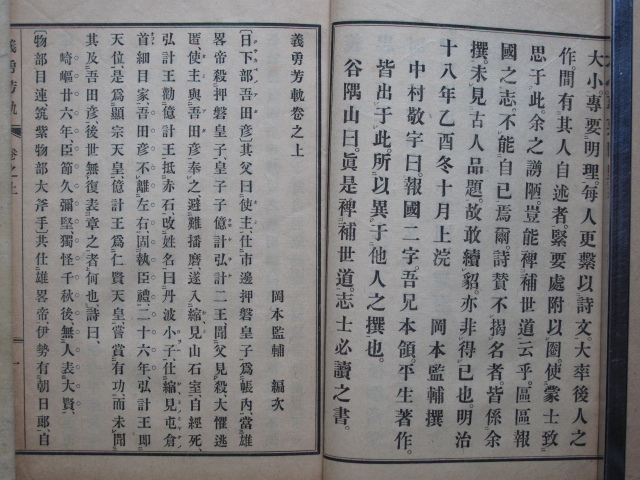 大小專要明理。每人更繫以詩文。大率後人之
作。間有其人自述者。緊要處附以圈。使蒙士致
思于此。余之謭陋。豈能裨補世道云乎。區區報
國之志。不能自已焉爾。詩贊不揭名者。皆係余
撰。未見古人品題。故敢續貂。亦非得已也。明治
十八年乙酉冬十月上浣 岡本監輔撰
中村敬宇曰。報國二字。吾兄本領。平生著作。
皆出于此。所以異于他人之撰也。
谷隅山曰。眞是裨補世道。志士必讀之書。
義勇芳軌卷之上
岡本監輔 編次
〔日下部吾田彥〕其父曰使主、仕市邊押磐皇子、爲帳內、當雄
畧帝殺押磐皇子、皇子子億計弘計二王、聞父見殺、大懼逃
匿、使主與吾田彥奉之避難播磨、遂入縮見山石室、自經死、
弘計王勸億計王、抵赤石、改姓名曰丹波小子、仕縮見屯倉
首細目家、吾田彥不離左右、固執臣禮、二十六年、弘計王即
天位、是爲顯宗天皇、億計王爲仁賢天皇、嘗賞有功、而未聞
其及吾田彥、後世無復表章之者、何也、詩曰、
崎嶇廿六年、臣節久彌堅、獨怪千秋後、無人表大賢、
〔物部目連、筑紫物部大斧手〕其仕雄畧帝、伊勢有朝日郎、自
義勇芳軌 卷之上 一